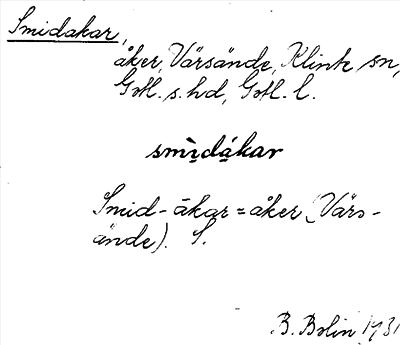 Smidakar,
åker, Värsände, Klinte sn,
Gotl. s. hd, Gotl. l.
smìdákar
Smid-åkar = åker (Värs-
ände). S.
B. Bolin 1931